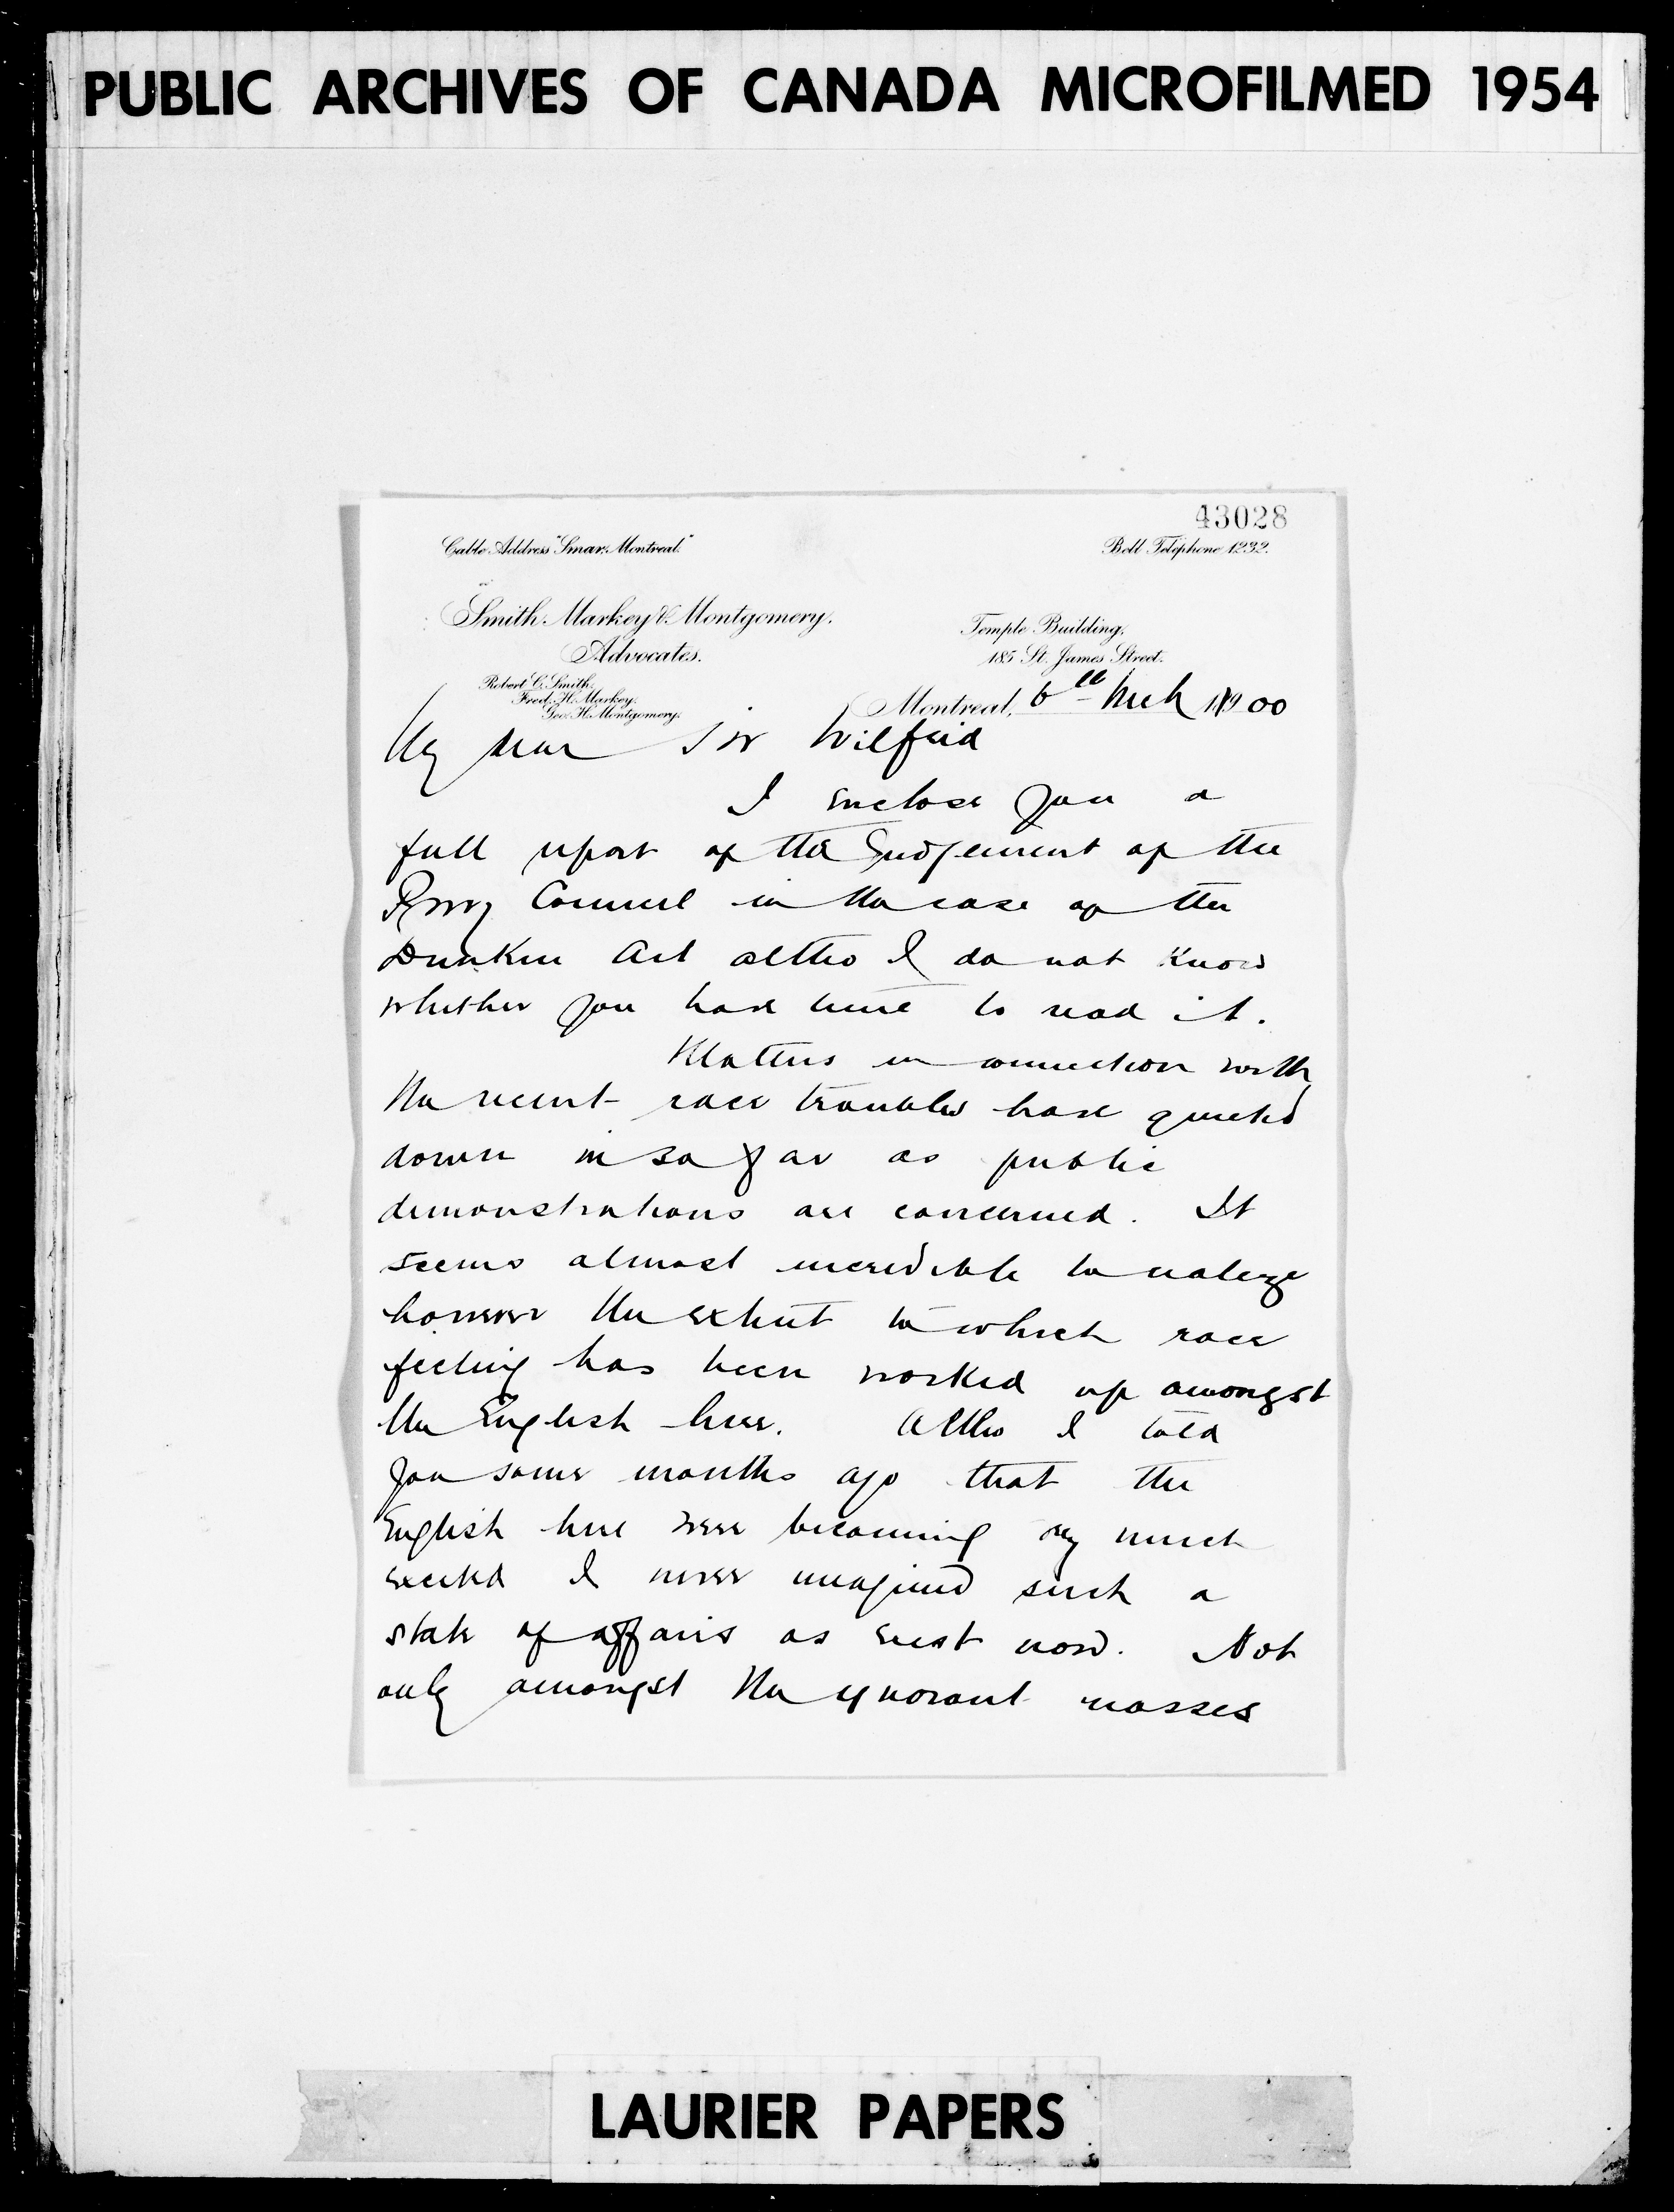 PUBLIC ARCHIVES OF CANADA MICROFILMED 1954
43028
Cable Address "Smar. Montreal."
Bell Telephone 1232.
Smith. Markey & Montgomery.
Advocates.
Temple Building,
185 St. James Street.
Robert C. Smith.
Fred. H. Markey.
Geo. H. Montgomery.
Montreal, 6th Mch 1900
My dear Sir Wilfrid
I enclose you a
full report of the Judgement of the
Privy Council in the case of the
Dunkin Act altho I do not know
whether you have time to read it.
Matters in connection with
the recent race troubles have quieted
down in so far as public
demonstrations are concerned. It
seems almost incredible to realize
however the extent to which race
feeling has been worked up amongst
the English here. Altho I told
you some months ago that the
English here were becoming very much
excited I never imagined such a
state of affairs as exist now. Not
only amongst the ignorant masses
LAURIER PAPERS